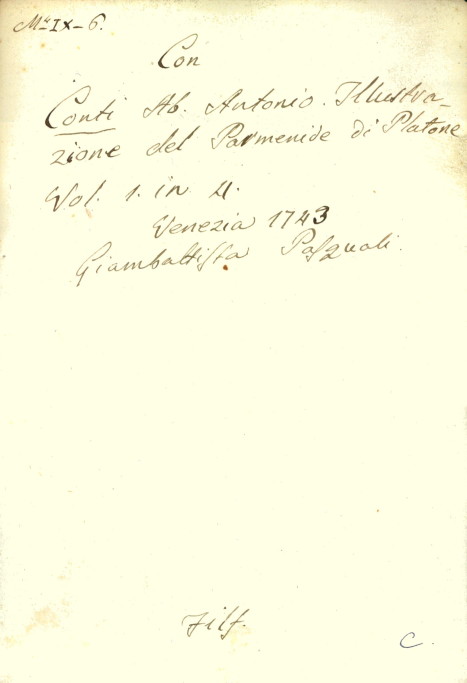 Mr IX-6.
Con
Conti Ab. Antonio. Illustra-
zione del Parmenide di Platone
Vol. 1. in 4.
Venezia 1743
Giambattista Pasquali.
Filf.
C.